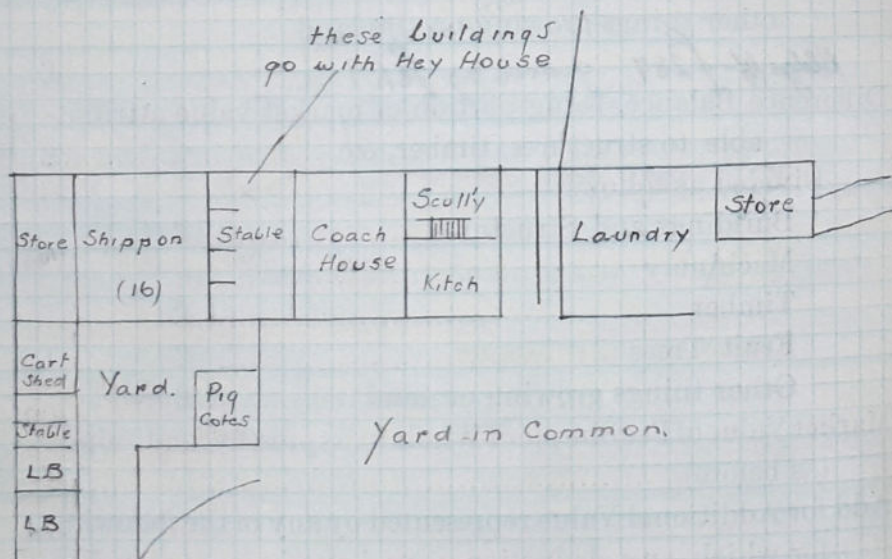 these buildings
go with Hey House
Store
Shippon
(16)
Stable
Coach
House
Scull'y
Kitch
Laundry
Store
Cart
Shed
Yard.
Pig
Cotes
Stable
Yard in Common.
LB
LB